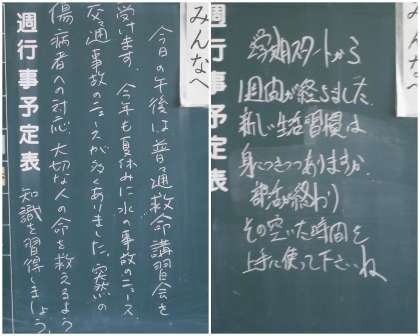 みんなへ
今日の午後は普通救命講習会を
受けます。今年も夏休みに水の事故のニュース
交通事故のニュースが多くありました。突然の
傷病者への対応 大切な人の命を救えるよう
知識を習得しましょう。
週行事予定表
みんなへ
学期スタートから
1週間が経ちました。
新しい生活習慣は
身につきつつありますか
部活が終わり
その空いた時間を
上手に使って下さいね
週行事予定表